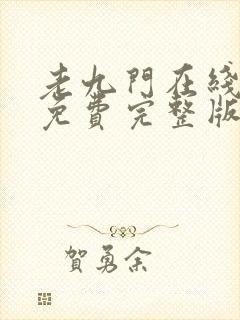 老九門在綫
免費完整版
賀勇余